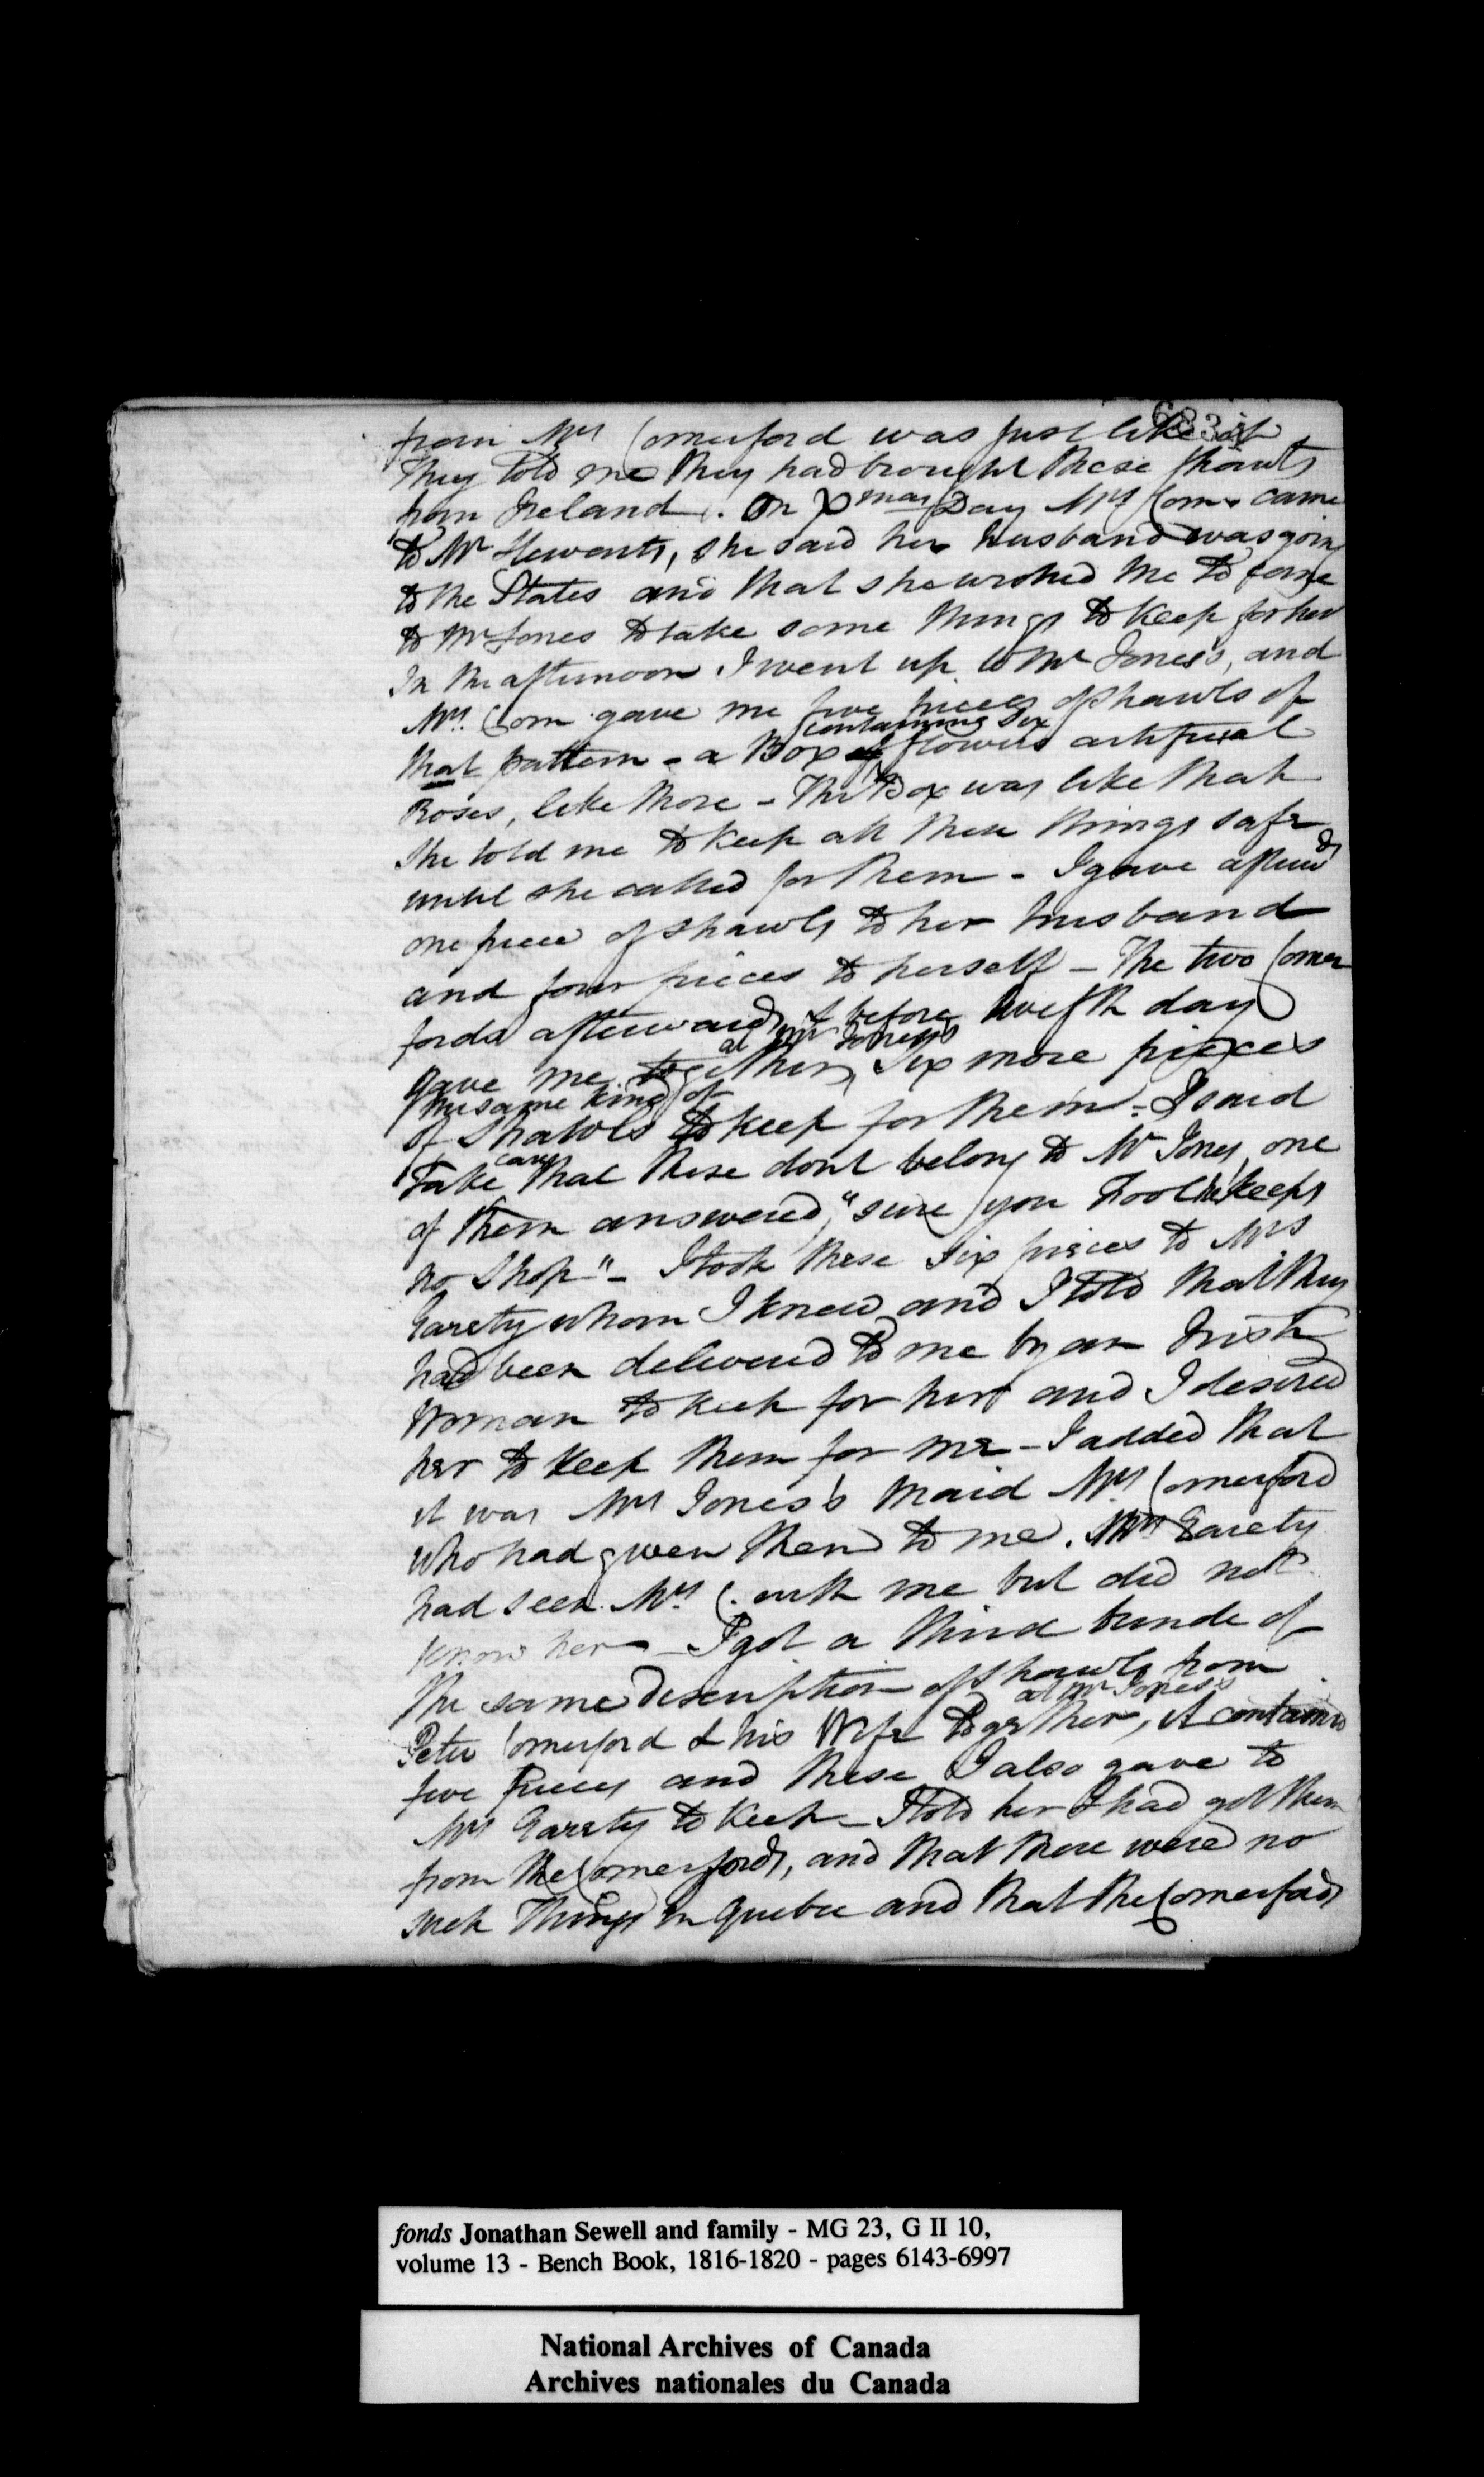 from Mrs Comerford was just like it
They told me they had brought these shawls
from Ireland. On Xmas Day Mrs Com- came
to Mr Stewarts, she said her husband was going
to the States and that she wished me to come
to Mr Jones to take some things to keep for her
In the afternoon I went up to Mr Jones's, and
Mrs. Com gave me five pieces of shawls of
containing six
that pattern - a Box of flowers artificial
Roses, like those - The Box was like that
She told me to keep all these things safe
until she called for them - I gave afterwds
one piece of shawls to her husband
and four pieces to herself - The two Comer
fords afterwards, & before twelfth day
at Mr Jones's
gave me together, six more pieces
the same kind of
of shawls to keep for them - I said
Take care that these dont belong to Mr Jones, one
of them answered, "sure you Fool he keeps
no shop" - I took these six pieces to Mrs
Garety whom I knew and I told that they
had been delivered to me by an Irish
woman to keep for her and I desired
her to keep them for me - I added that
it was Mrs Jones's Maid Mrs Comerford
who had given them to me. Mrs Garety
had seen Mrs C. with me but did not
know her - I got a third bundle of
the same description of shawls from
at Mr Jones's
Peter Comerford & his Wife together, it contained
five pieces and these I also gave to
Mrs Garety to keep - I told her I had got them
from the Comerfords, and that there were no
such Things in Quebec and that the Comerfords
fonds Jonathan Sewell and family - MG 23, G II 10,
volume 13 - Bench Book, 1816-1820 - pages 6143-6997
National Archives of Canada
Archives nationales du Canada